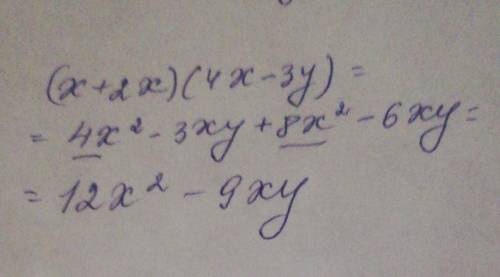 (x+2x)(4x-3y)=
= 4x²-3xy+8x²-6xy=
= 12x²-9xy